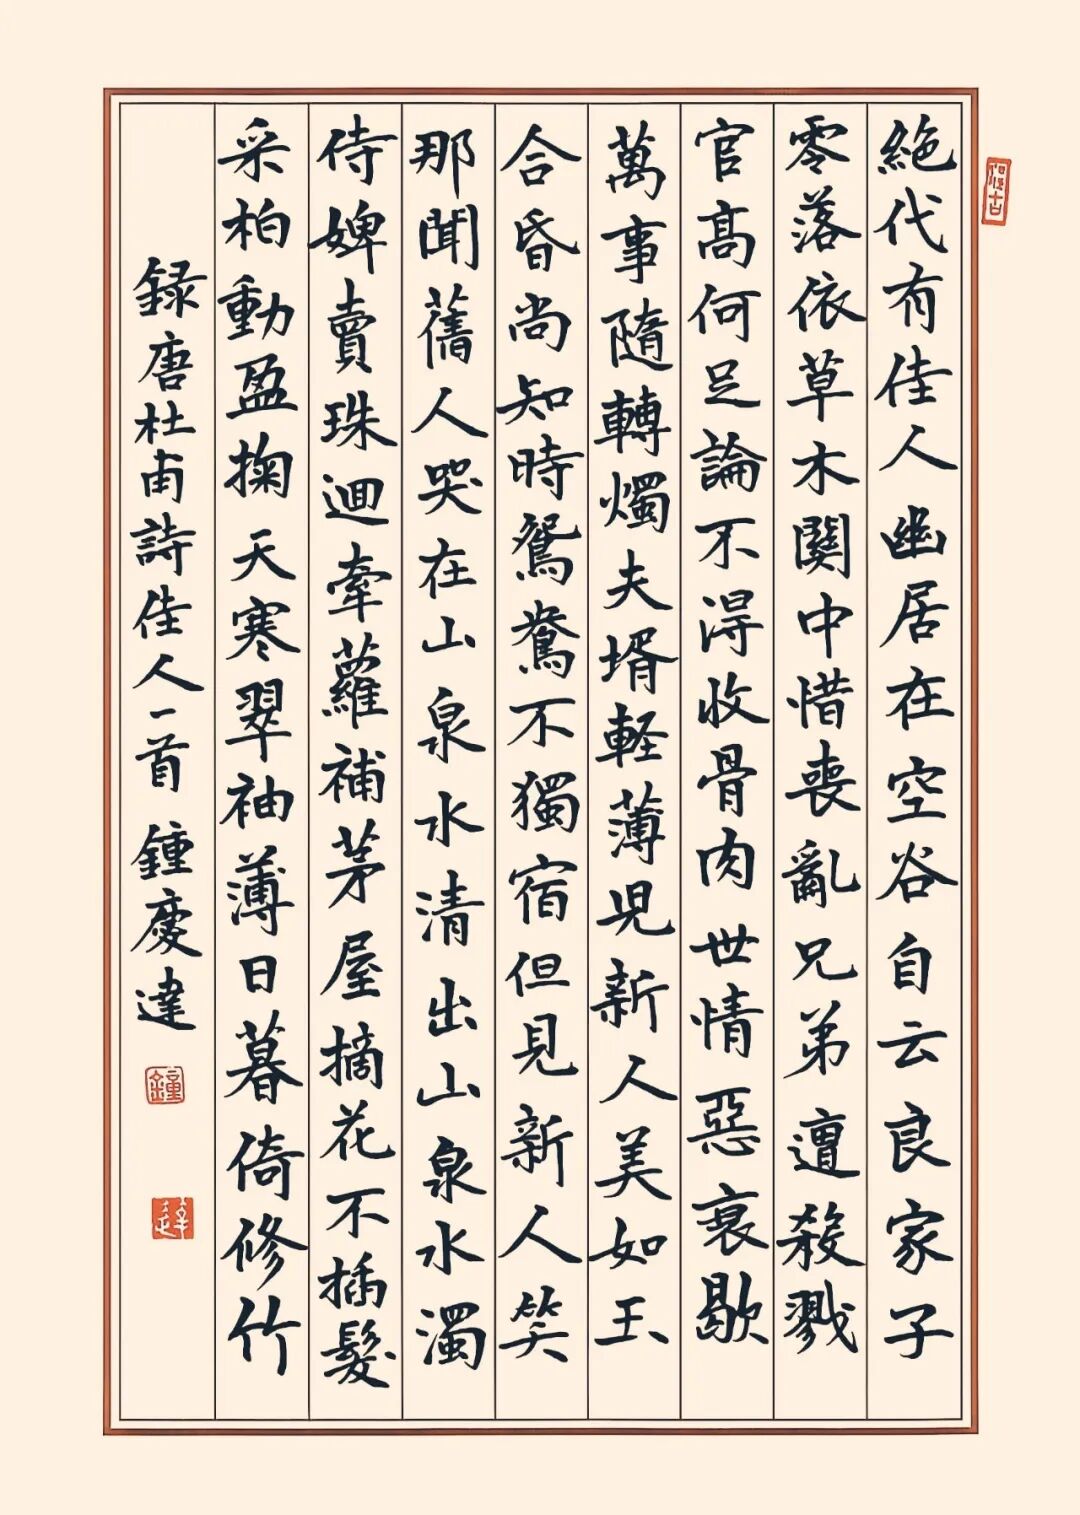 絶代有佳人幽居在空谷自云良家子
零落依草木関中惜喪亂兄弟遭殺戮
官高何足論不淂收骨肉世情惡衰歇
萬事隨轉燭夫壻軽薄児新人美如玉
合昏尚知時鴛鴦不獨宿但見新人笑
那聞舊人哭在山泉水清出山泉水濁
侍婢賣珠迴牽蘿補茅屋摘花不插髮
采柏動盈掬天寒翠袖薄日暮倚修竹
録唐杜甫詩佳人一首 鍾慶達
鍾
達